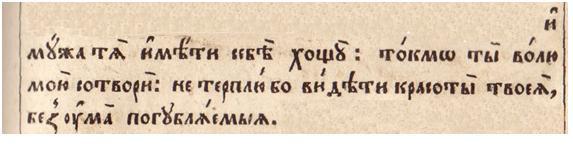 и҆̀
мꙋ́жа тѧ̀ и҆мѣ́ти себѣ̀ хощꙋ̀: то́кмѡ ты̀ во́лю
мою̀ сотворѝ: не терплю́ бо ви́дѣти красоты̀ твоеѧ̀,
беꙁꙋма̀ погꙋблѧ́емыѧ.